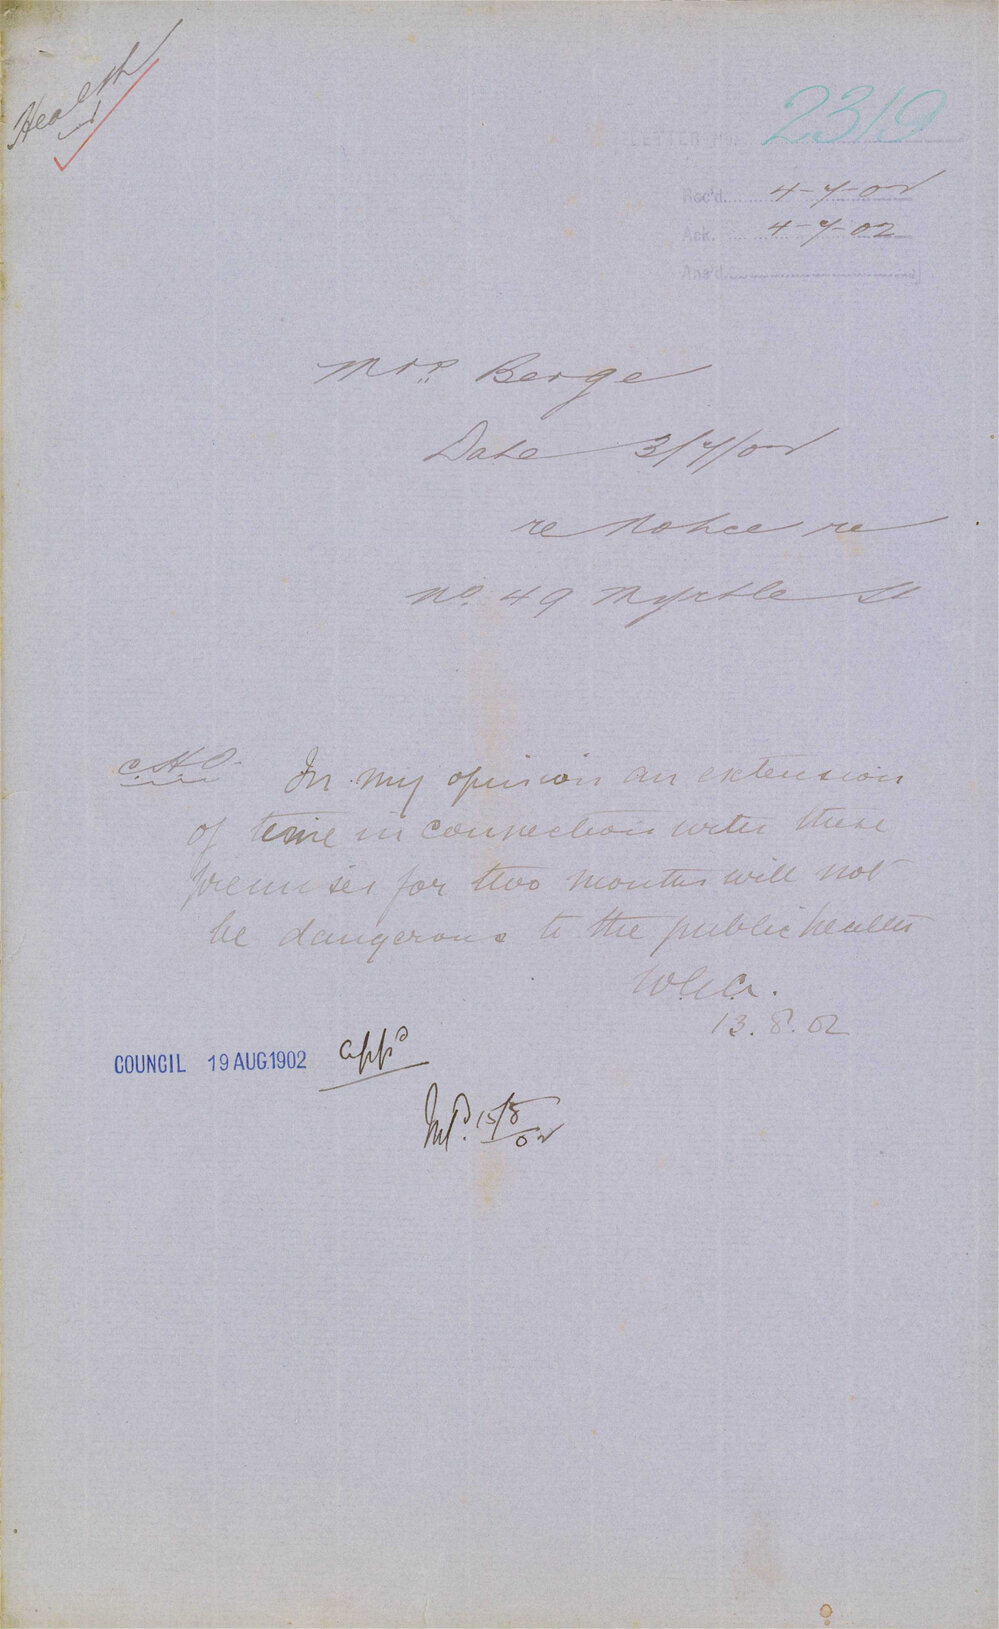 Health
LETTER No. 2319
Rec'd. 4-7-02
Ack. 4-7-02
Ans'd.
Mrs. Berge
Date 3/7/02
re Notice re
No. 49 Myrtle St
C.H.O. In my opinion an extension
of time in connection with these
premises for two months will not
be dangerous to the public health
13.8.02
COUNCIL 19 AUG.1902 appd
15/8/02